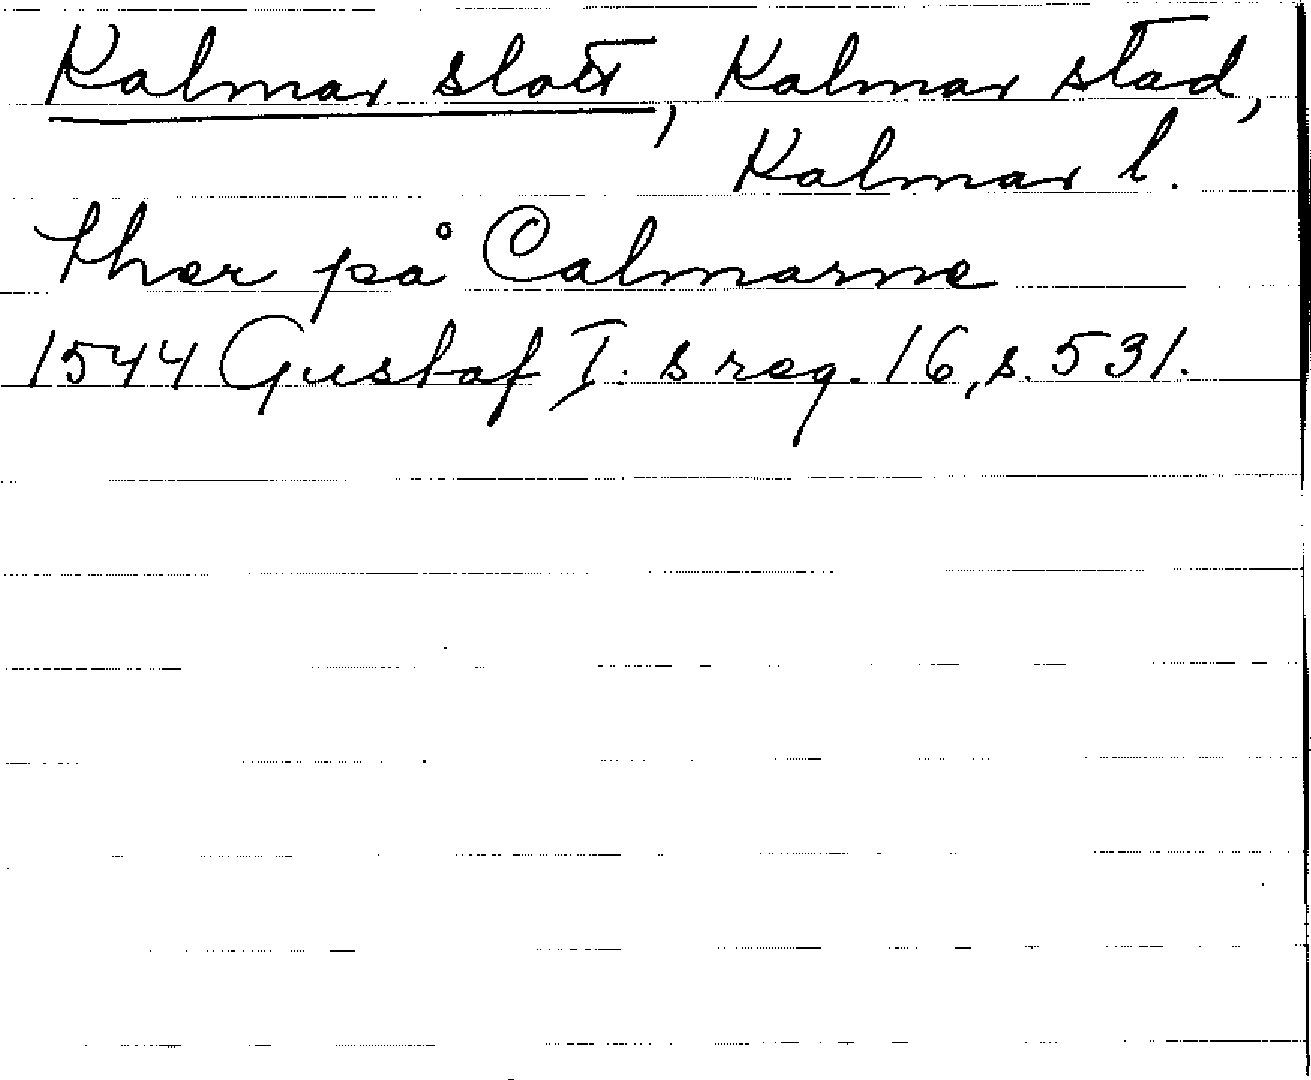 Kalmar slott, Kalmar stad,
Kalmar l.
ther på Calmarne
1544 Gustaf I:s reg. 16, s. 531.